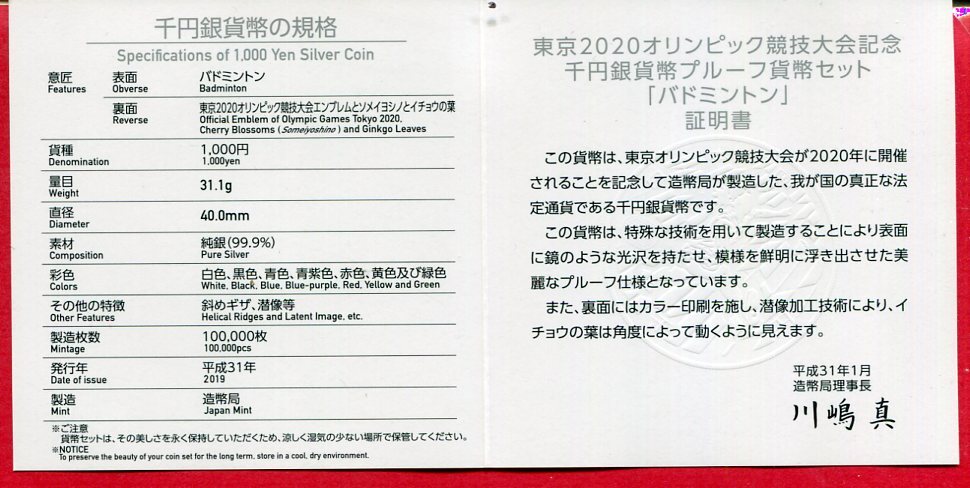 千円銀貨幣の規格
Specifications of 1,000 Yen Silver Coin
意匠 表面 バドミントン
Features Obverse Badminton
裏面 東京2020オリンピック競技大会エンブレムとソメイヨシノとイチョウの葉
Reverse Official Emblem of Olympic Games Tokyo 2020,
Cherry Blossoms (Someiyoshino) and Ginkgo Leaves
貨種 1,000円
Denomination 1,000yen
量目 31.1g
Weight
直径 40.0mm
Diameter
素材 純銀(99.9%)
Composition Pure Silver
彩色 白色、黒色、青色、青紫色、赤色、黄色及び緑色
Colors White, Black, Blue, Blue-purple, Red, Yellow and Green
その他の特徴 斜めギザ、潜像等
Other Features Helical Ridges and Latent Image, etc.
製造枚数 100,000枚
Mintage 100,000pcs
発行年 平成31年
Date of issue 2019
製造 造幣局
Mint Japan Mint
※ご注意
貨幣セットは、その美しさを永く保持していただくため、涼しく湿気の少ない場所で保管してください。
※NOTICE
To preserve the beauty of your coin set for the long term, store in a cool, dry environment.
東京2020オリンピック競技大会記念
千円銀貨幣プルーフ貨幣セット
「バドミントン」
証明書
この貨幣は、東京オリンピック競技大会が2020年に開催
されることを記念して造幣局が製造した、我が国の真正な法
定通貨である千円銀貨幣です。
この貨幣は、特殊な技術を用いて製造することにより表面
に鏡のような光沢を持たせ、模様を鮮明に浮き出させた美
麗なプルーフ仕様となっています。
また、裏面にはカラー印刷を施し、潜像加工技術により、イ
チョウの葉は角度によって動くように見えます。
平成31年1月
造幣局理事長
川嶋 真